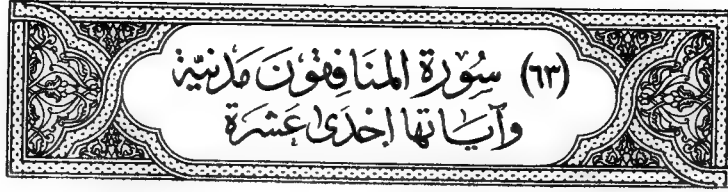 (٦٣) سُورَة المنَافِقونَ مَدنيّة
وَآيَاتها احْدَىٰ عَشرَة